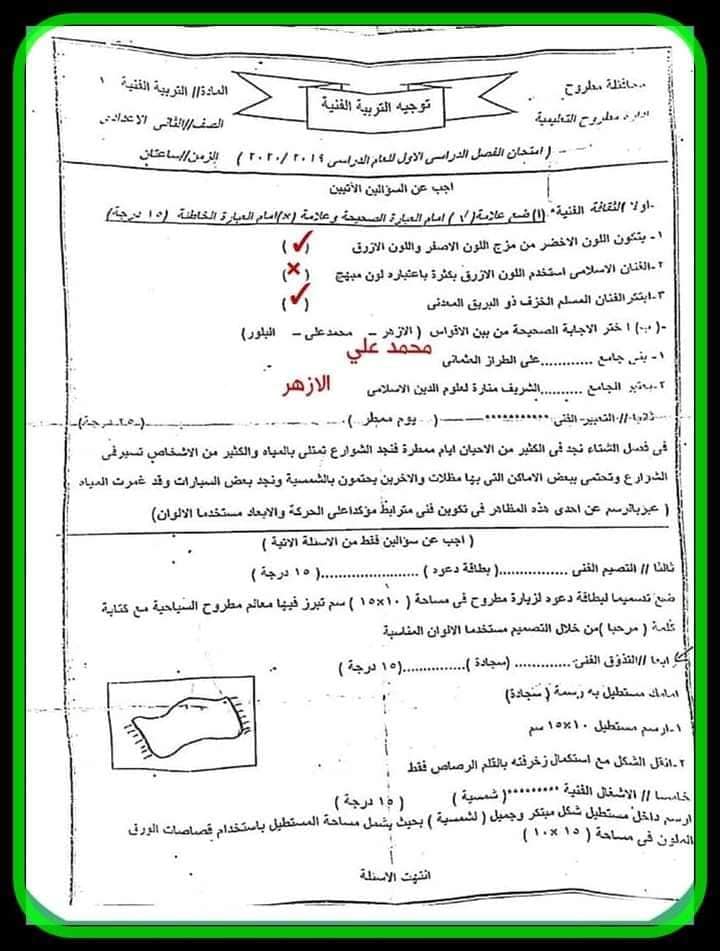 محافظة مطروح
ادارة مطروح التعليمية
توجيه التربية الفنية
المادة// التربية الفنية
الصف//الثانى الاعدادى
( امتحان الفصل الدراسى الاول للعام الدراسى ٢٠١٩ /٢٠٢٠ ) الزمن//ساعتان
اجب عن السؤالين الأتيين
اولا //الثقافة الفنية* (ا) ضع علامة( √ ) امام العبارة الصحيحة وعلامة (×)امام العبارة الخاطئة (١٥ درجة)
١- يتكون اللون الاخضر من مزج اللون الاصفر واللون الازرق (✓)
٢-الفنان الاسلامى استخدم اللون الازرق بكثرة باعتباره لون مبهج (×)
٣-ابتكر الفنان المسلم الخزف ذو البريق المعدنى (✓)
-( ب) اختر الاجابة الصحيحة من بين الاقواس ( الازهر – محمدعلى – البلور)
١- بنى جامع ............على الطراز العثمانى محمد علي
٢-يعتبر الجامع ..........الشريف منارة لعلوم الدين الاسلامى الازهر
ثانيا// التعبير الفنى ***********——( يوم ممطر ).............(٢٥ درجة)
فى فصل الشتاء نجد فى الكثير من الاحيان ايام ممطرة فنجد الشوارع تمتلى بالمياه والكثير من الاشخاص تسير فى
الشوارع وتحتمى ببعض الاماكن التى بها مظلات والاخرين يحتمون بالشمسية ونجد بعض السيارات وقد غمرت المياه
( عبر بالرسم عن احدى هذه المظاهر فى تكوين فنى مترابط مؤكدا على الحركة والابعاد مستخدما الالوان)
( اجب عن سؤالين فقط من الاسئلة الاتية )
ثالثا // التصيم الفنى ................( بطاقة دعوه ) .......................( ١٥ درجة )
ضع تصميما لبطاقة دعوه لزيارة مطروح فى مساحة ( ١٠×١٥ ) سم تبرز فيها معالم مطروح السياحية مع كتابة
كلمة ( مرحبا )من خلال التصميم مستخدما الالوان المناسبة
رابعا //التذوق الفنى............. (سجادة )..............(١٥ درجة )
امامك مستطيل به رسمة ( سجادة)
١-ارسم مستطيل ١٠×١٥ سم
٢-انقل الشكل مع استكمال زخرفته بالقلم الرصاص فقط
خامسا // الاشغال الفنية *********( شمسية ) ( ١٥ درجة )
ارسم داخل مستطيل شكل مبتكر وجميل ( لشمسية ) بحيث يشمل مساحة المستطيل باستخدام قصاصات الورق
الملون فى مساحة ( ١٥ ×١٠ )
انتهت الاسئلة